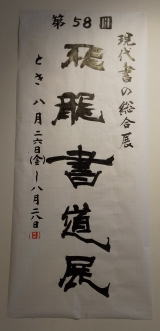 現代書の総合展
第58回
飛龍書道展
とき 八月二六日(金)〜八月二八日(日)